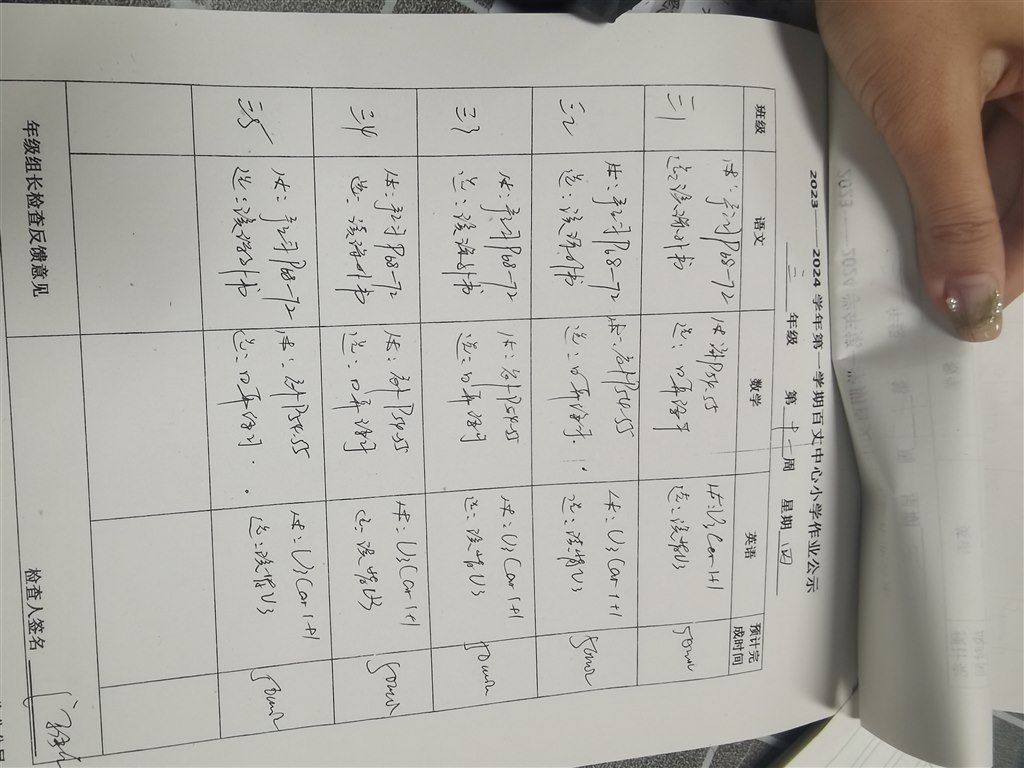 2023——2024学年第一学期百丈中心小学作业公示
三 年级 第 十一 周 星期 四
班级 语文 数学 英语 预计完成时间
三1
P68-72
选:读课外书
P54-55
选:口算
选:读背U3
50min
三2
必:练习P68-72
选:读课外书
必:P54-55
选:口算练习
必:U3 Car 1+1
选:读背U3
50min
三3
必:练习P68-72
选:读课外书
必:P54-55
选:口算练习
必:U3 Car 1+1
选:读背U3
50min
三4
必:练习P68-72
选:读课外书
必:P54-55
选:口算练习
必:U3 Car 1+1
选:读背U3
50min
三5
必:练习P68-72
选:读课外书
必:P54-55
选:口算练习
必:U3 Car 1+1
选:读背U3
50min
年级组长检查反馈意见
检查人签名